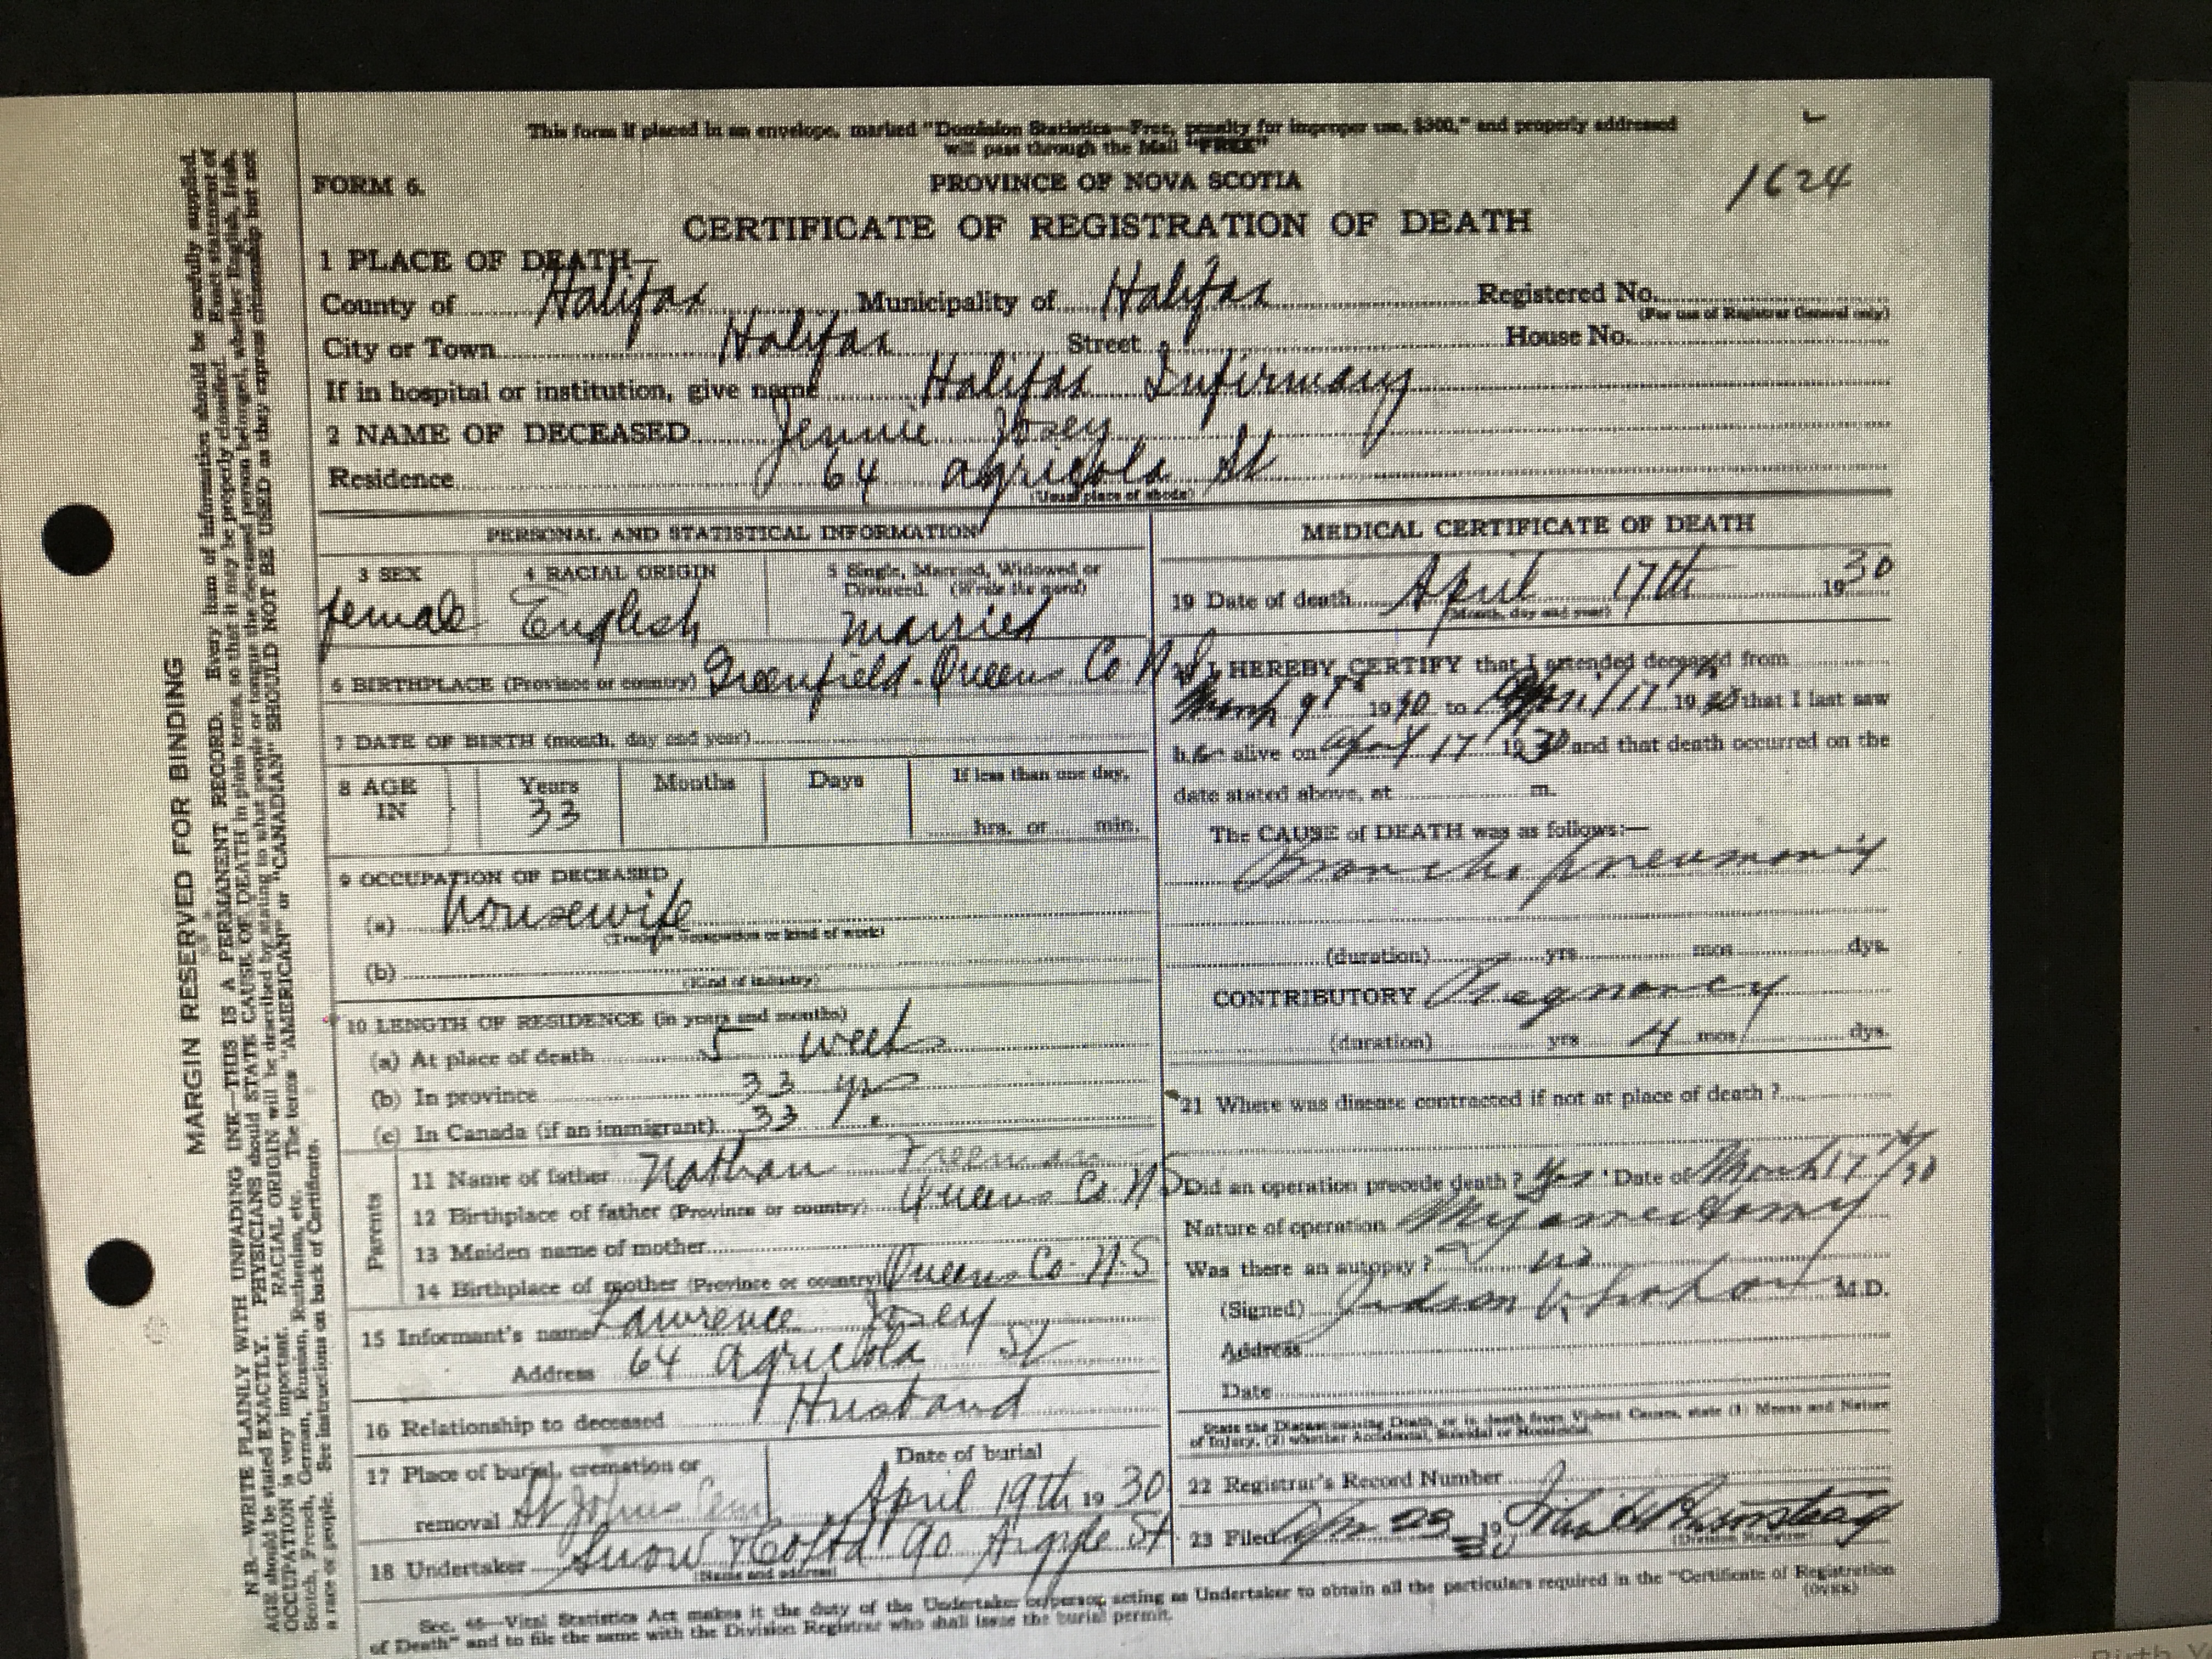 This form if placed in an envelope, marked "Dominion Statistics—Free, penalty for improper use, $300," and properly addressed
will pass through the Mail "FREE"
1624
FORM 6.
PROVINCE OF NOVA SCOTIA
CERTIFICATE OF REGISTRATION OF DEATH
1 PLACE OF DEATH—
County of Halifax Municipality of Halifax Registered No.
(For use of Registrar General only)
City or Town Halifax Street House No.
If in hospital or institution, give name Halifax Infirmary
2 NAME OF DECEASED Jennie Josey
Residence 64 Agricola St
(Usual place of abode)
PERSONAL AND STATISTICAL INFORMATION
3 SEX female
4 RACIAL ORIGIN English
5 Single, Married, Widowed or Divorced. (Write the word) Married
6 BIRTHPLACE (Province or country) Greenfield. Queens Co. N.S.
7 DATE OF BIRTH (month, day and year)
8 AGE IN Years 33 Months Days If less than one day, hrs. or min.
9 OCCUPATION OF DECEASED
(a) housewife
(Trade, occupation or kind of work)
(b)
(Kind of industry)
10 LENGTH OF RESIDENCE (in years and months)
(a) At place of death 5 weeks
(b) In province 33 yrs
(c) In Canada (if an immigrant) 33 y.
Parents
11 Name of father Nathan Freeman
12 Birthplace of father (Province or country) Queens Co. N.S
13 Maiden name of mother
14 Birthplace of mother (Province or country) Queens Co. N.S
15 Informant's name Lawrence Josey
Address 64 Agricola St
16 Relationship to deceased Husband
17 Place of burial, cremation or removal St Johns Cem
Date of burial April 19th 1930
18 Undertaker Snow & Co Ltd 90 Argyle St
(Name and address)
MEDICAL CERTIFICATE OF DEATH
19 Date of death April 17th 1930
(Month, day and year)
I HEREBY CERTIFY that I attended deceased from
March 9th 1930 to April 17 1930 that I last saw
her alive on April 17 1930 and that death occurred on the
date stated above, at m.
The CAUSE of DEATH was as follows:—
Broncho pneumonia
(duration) yrs mos dys.
CONTRIBUTORY Pregnancy
(duration) yrs 4 mos dys.
21 Where was disease contracted if not at place of death ?
Did an operation precede death ? Yes Date of March 17th/30
Nature of operation Myomectomy
Was there an autopsy ? no
(Signed) Judson M.D.
Address
Date
State the Disease causing Death, or in death from Violent Causes, state (1) Means and Nature
of Injury, (2) whether Accidental, Suicidal or Homicidal.
22 Registrar's Record Number
23 Filed Apr 23 1930
(Division Registrar)
Sec. 46—Vital Statistics Act makes it the duty of the Undertaker or person acting as Undertaker to obtain all the particulars required in the "Certificate of Registration
of Death" and to file the same with the Division Registrar who shall issue the burial permit.
(OVER)
MARGIN RESERVED FOR BINDING
N.B.—WRITE PLAINLY WITH UNFADING INK—THIS IS A PERMANENT RECORD. Every item of information should be carefully supplied.
AGE should be stated EXACTLY. PHYSICIANS should STATE CAUSE OF DEATH in plain terms, so that it may be properly classified. Exact statement of
OCCUPATION is very important. RACIAL ORIGIN will be described by stating to what people or tongue the deceased person belonged, whether English, Irish,
Scotch, French, German, Russian, Ruthenian, etc. The terms "AMERICAN" or "CANADIAN" SHOULD NOT BE USED as they express citizenship but not
a race or people. See instructions on back of Certificate.